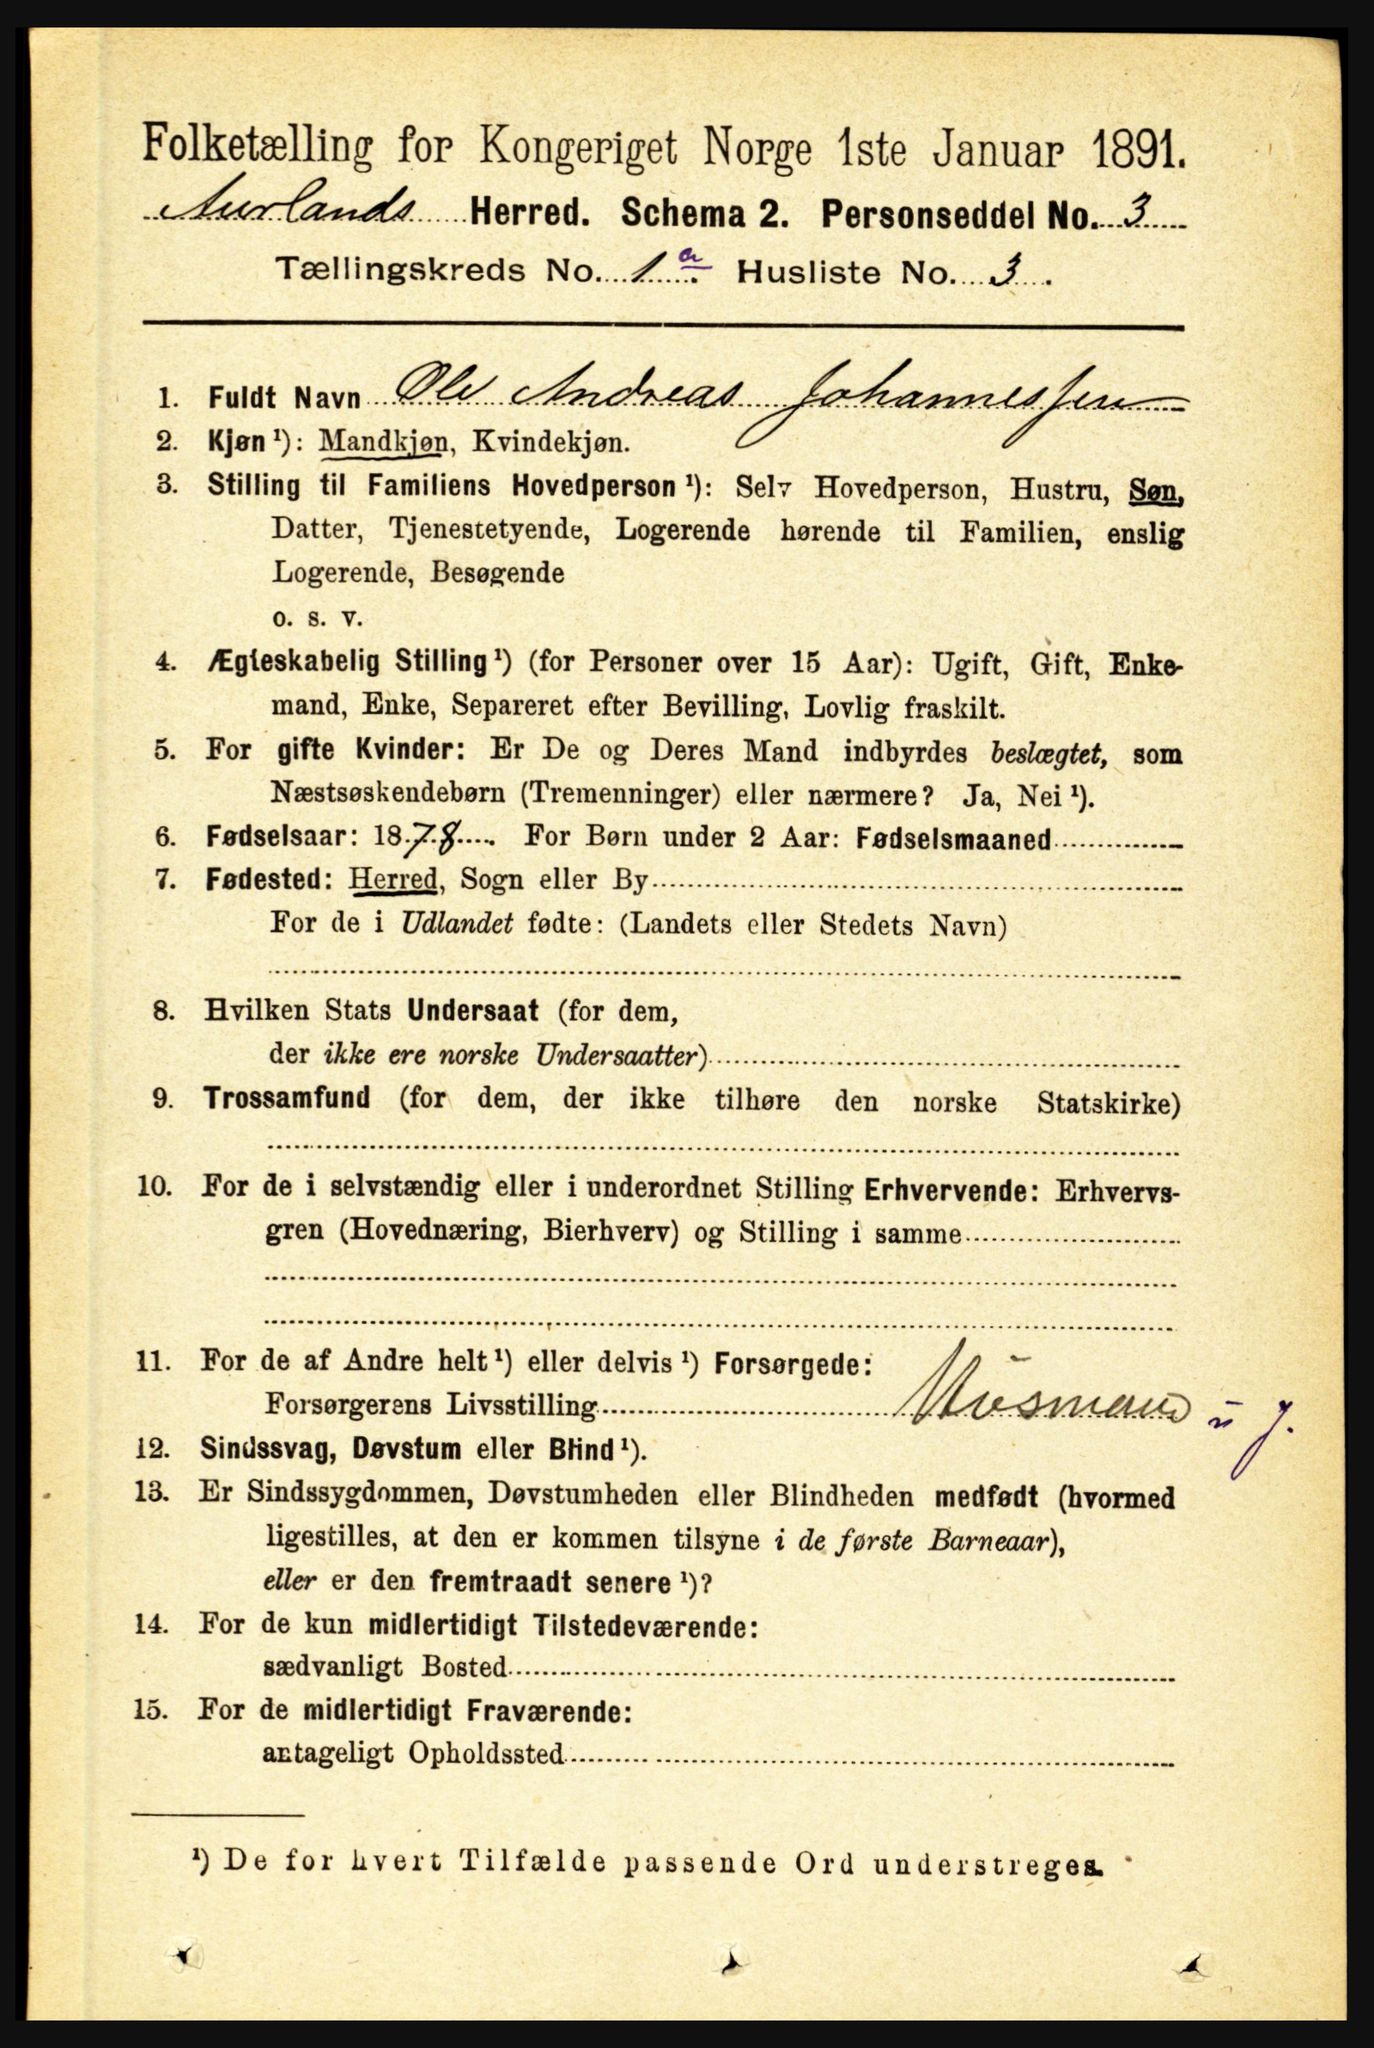 Folketælling for Kongeriget Norge 1ste Januar 1891.
Aurlands Herred. Schema 2. Personseddel No. 3
Tællingskreds No. 1 a. Husliste No. 3.
1. Fuldt Navn Ole Andreas Johannessen
2. Kjøn ¹): Mandkjøn, Kvindekjøn.
3. Stilling til Familiens Hovedperson ¹): Selv Hovedperson, Hustru, Søn,
Datter, Tjenestetyende, Logerende hørende til Familien, enslig
Logerende, Besøgende
o. s. v.
4. Ægteskabelig Stilling ¹) (for Personer over 15 Aar): Ugift, Gift, Enke-
mand, Enke, Separeret efter Bevilling, Lovlig fraskilt.
5. For gifte Kvinder: Er De og Deres Mand indbyrdes beslægtet, som
Næstsøskendebørn (Tremenninger) eller nærmere? Ja, Nei ¹).
6. Fødselsaar: 1878. For Børn under 2 Aar: Fødselsmaaned
7. Fødested: Herred, Sogn eller By
For de i Udlandet fødte: (Landets eller Stedets Navn)
8. Hvilken Stats Undersaat (for dem,
der ikke ere norske Undersaatter)
9. Trossamfund (for dem, der ikke tilhøre den norske Statskirke)
10. For de i selvstændig eller i underordnet Stilling Erhvervende: Erhvervs-
gren (Hovednæring, Bierhverv) og Stilling i samme
11. For de af Andre helt ¹) eller delvis ¹) Forsørgede:
Forsørgerens Livsstilling Husmand u J.
12. Sindssvag, Døvstum eller Blind ¹).
13. Er Sindssygdommen, Døvstumheden eller Blindheden medfødt (hvormed
ligestilles, at den er kommen tilsyne i de første Barneaar),
eller er den fremtraadt senere ¹)?
14. For de kun midlertidigt Tilstedeværende:
sædvanligt Bosted
15. For de midlertidigt Fraværende:
antageligt Opholdssted
¹) De for hvert Tilfælde passende Ord understreges.